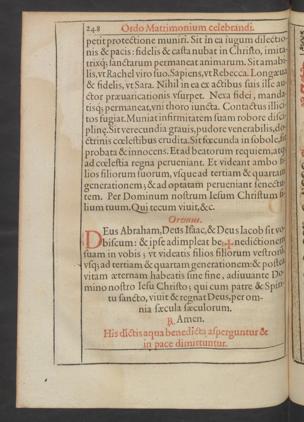 248 Ordo Matrimonium celebrandi.
petit protectione muniri. Sit in ea iugum dilectio-
nis & pacis: fidelis & casta nubat in Christo, imita-
trixq; sanctarum permaneat animarum. Sit amabi-
lis, vt Rachel viro suo. Sapiens, vt Rebecca. Longæua
& fidelis, vt Sara. Nihil in ea ex actibus suis ille au-
ctor præuaricationis vsurpet. Nexa fidei, manda-
tisq; permaneat, vni thoro iuncta. Contactus illici-
tos fugiat. Muniat infirmitatem suam robore disci-
plinę. Sit verecundia grauis, pudore venerabilis, do-
ctrinis cœlestibus erudita. Sit fœcunda in sobole, sit
probata & innocens. Et ad beatorum requiem, atq;
ad cœlestia regna perueniant. Et videant ambo fi-
lios filiorum suorum, vsque ad tertiam & quartam
generationem; & ad optatam perueniant senectu-
tem. Per Dominum nostrum Iesum Christum fi-
lium tuum. Qui tecum viuit, &c.
Oremus.
DEus Abraham, Deus Isaac, & Deus Iacob sit vo-
biscum: & ipse adimpleat be✠nedictionem
suam in vobis; vt videatis filios filiorum vestrorũ
vsq; ad tertiam & quartam generationem: & postea
vitam æternam habeatis sine fine, adiuuante Do-
mino nostro Iesu Christo; qui cum patre & Spiri-
tu sancto, viuit & regnat Deus, per om-
nia sæcula sæculorum.
℟. Amen.
His dictis aqua benedicta asperguntur &
in pace dimittuntur.